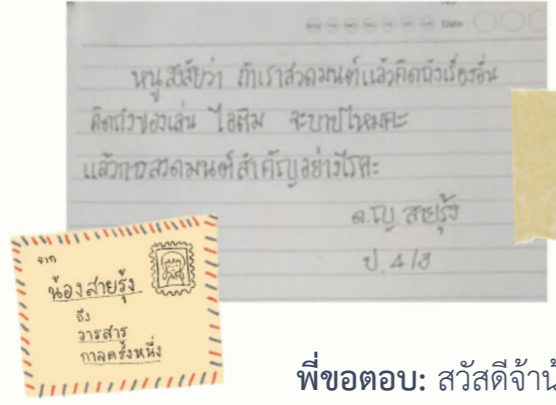 Date
หนูสงสัยว่า ถ้าเราสวดมนต์แล้วคิดถึงเรื่องอื่น
คิดถึงของเล่น ไอติม จะบาปไหมคะ
แล้วการสวดมนต์สำคัญอย่างไรคะ
ด.ญ. สายรุ้ง
ป. 4/3
จาก
น้องสายรุ้ง
ถึง
วารสาร
กาลครั้งหนึ่ง
พี่ขอตอบ: สวัสดีจ้าน้